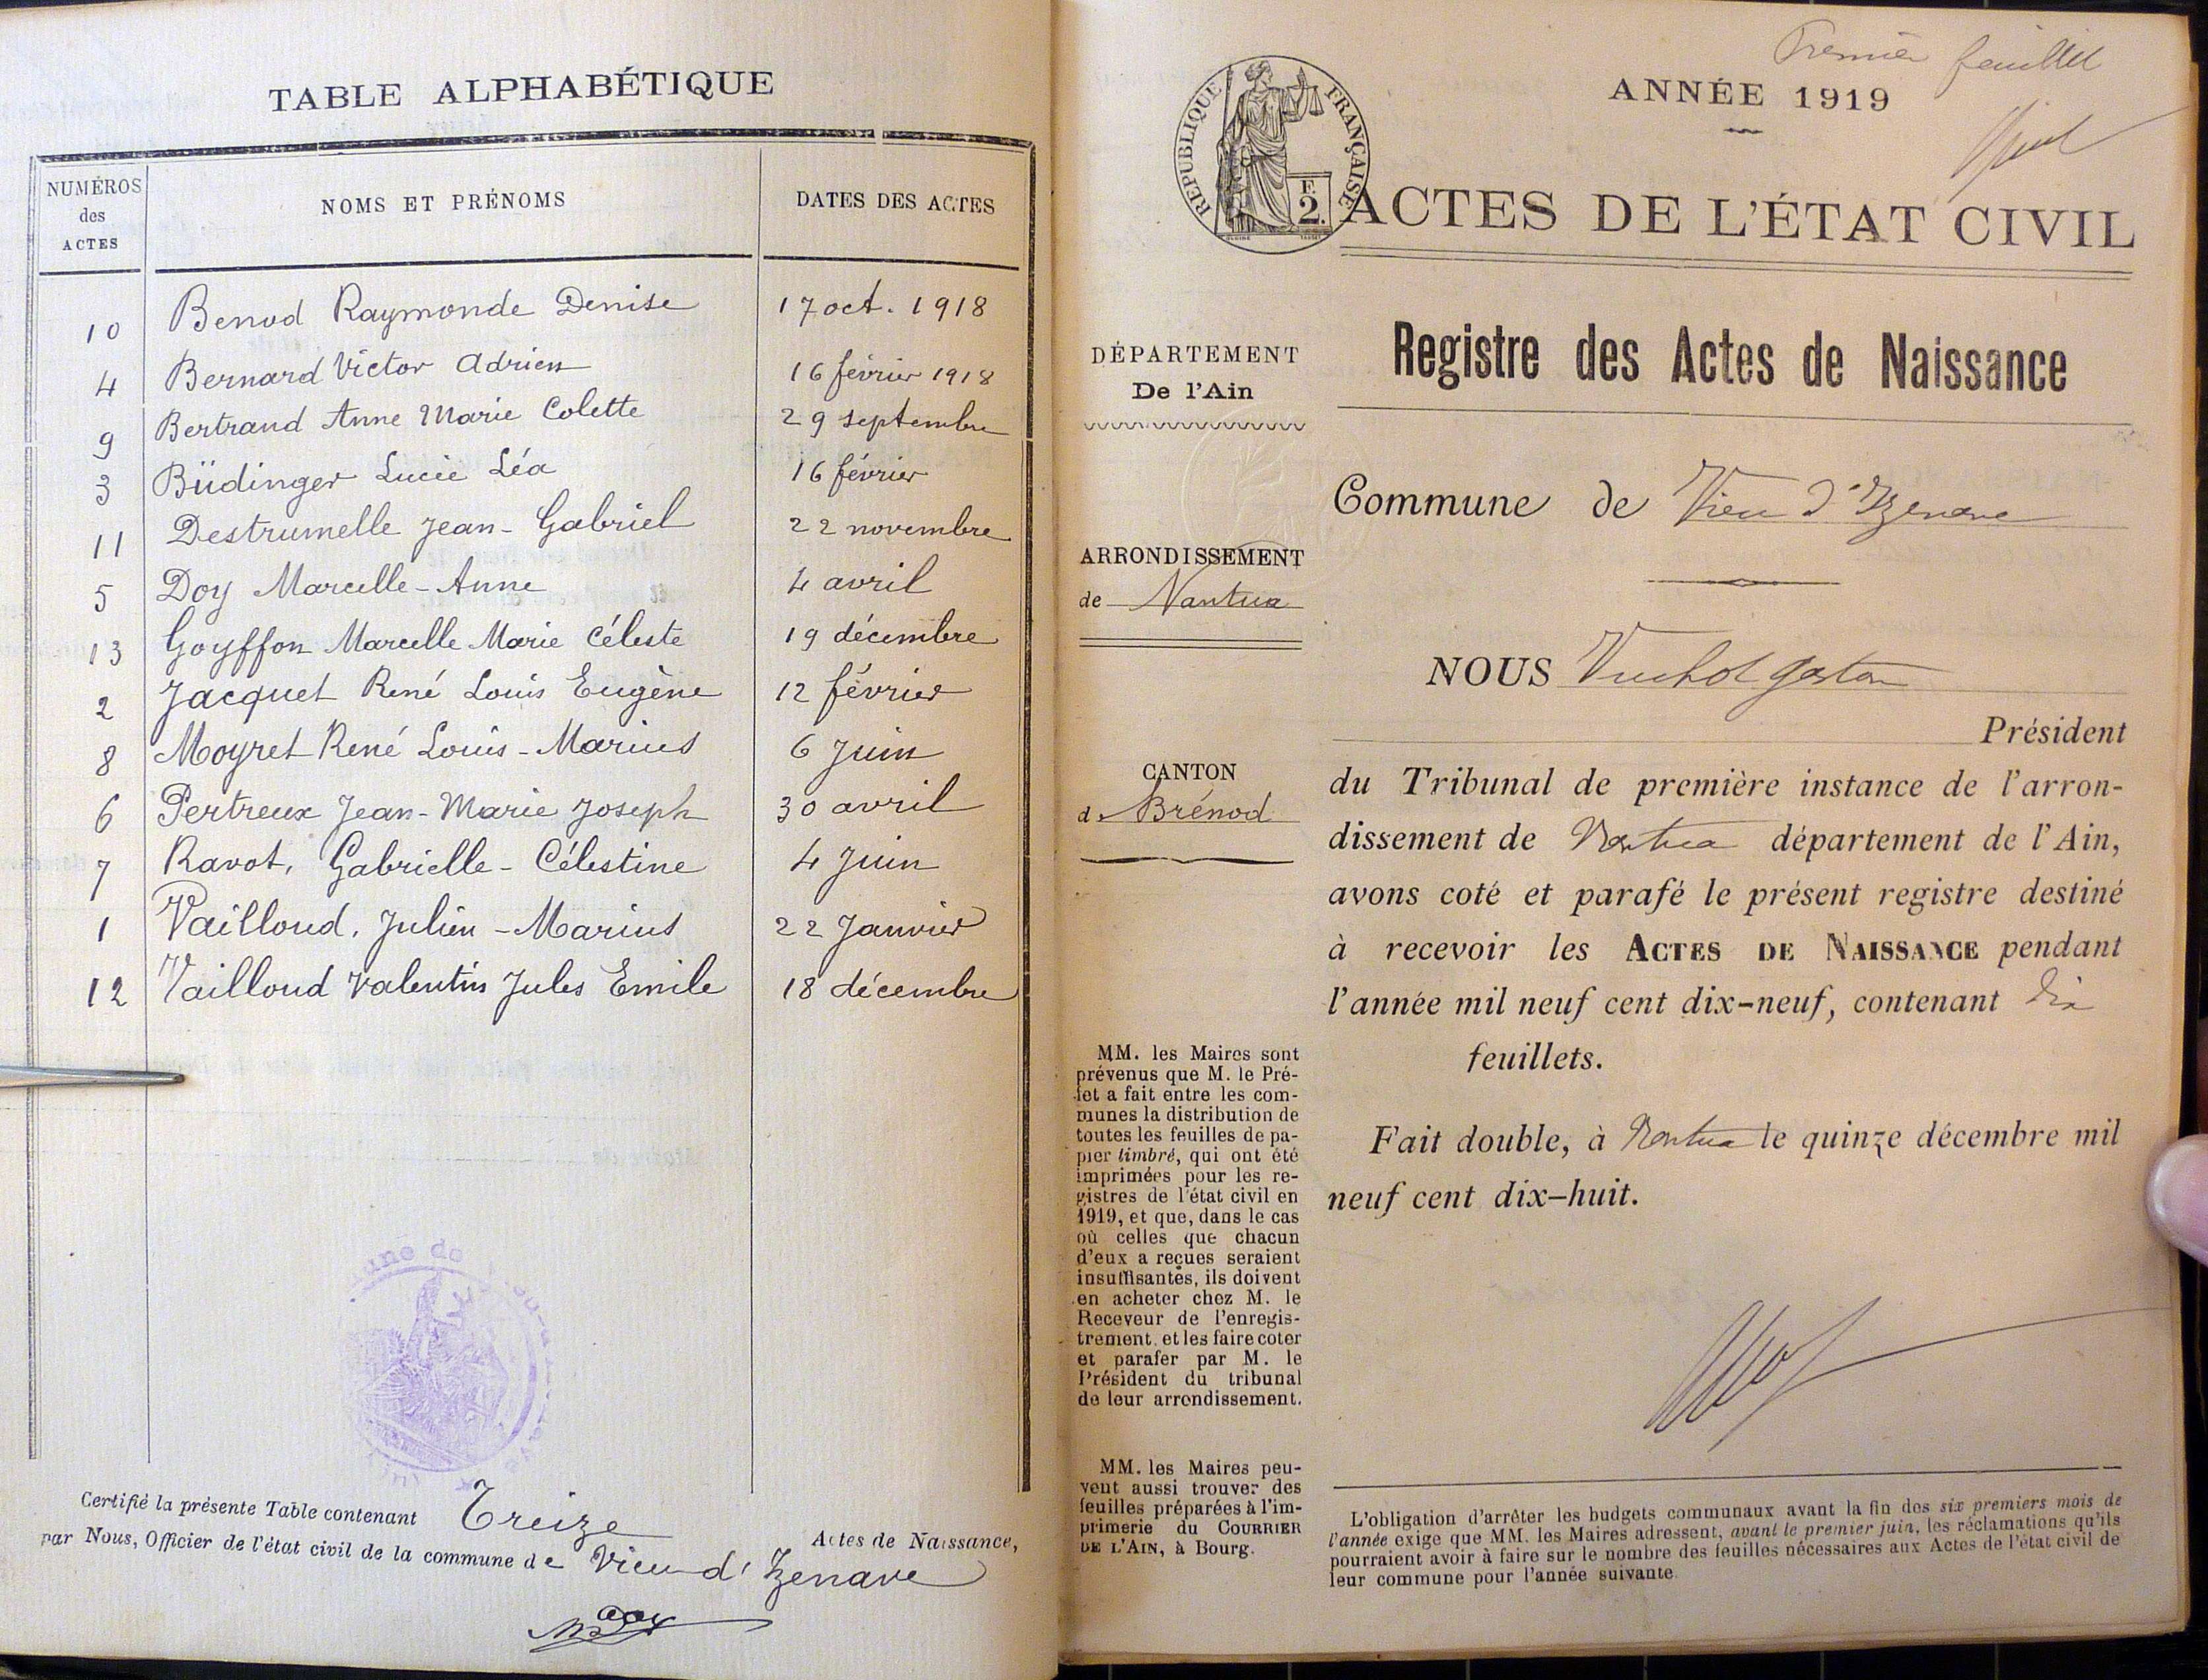 TABLE ALPHABÉTIQUE
NUMÉROS des ACTES
NOMS ET PRÉNOMS
DATES DES ACTES
10 Benod Raymonde Denise 17 oct. 1918
4 Bernard Victor Adrien 16 février 1918
9 Bertrand Anne Marie Colette 29 septembre
3 Büdinger Lucie Léa 16 février
11 Destrumelle Jean-Gabriel 22 novembre
5 Doy Marcelle-Anne 4 avril
13 Goyffon Marcelle Marie Céleste 19 décembre
2 Jacquet René Louis Eugène 12 février
8 Moyret René Louis-Marius 6 Juin
6 Pertreux Jean-Marie Joseph 30 avril
7 Ravot, Gabrielle-Célestine 4 Juin
1 Vailloud, Julien-Marius 22 Janvier
12 Vailloud Valentin Jules Emile 18 décembre
Certifié la présente Table contenant Treize Actes de Naissance,
par Nous, Officier de l'état civil de la commune de Vieu d'Izenave
Premier feuillet
ANNÉE 1919
RÉPUBLIQUE FRANÇAISE
F. 2.
ACTES DE L'ÉTAT CIVIL
Registre des Actes de Naissance
DÉPARTEMENT
De l'Ain
Commune de Vieu d'Izenave
ARRONDISSEMENT
de Nantua
NOUS Vuchot Gaston
Président
CANTON
de Brénod
du Tribunal de première instance de l'arron-
dissement de Nantua département de l'Ain,
avons coté et parafé le présent registre destiné
à recevoir les ACTES DE NAISSANCE pendant
l'année mil neuf cent dix-neuf, contenant dix
feuillets.
Fait double, à Nantua le quinze décembre mil
neuf cent dix-huit.
MM. les Maires sont
prévenus que M. le Pré-
fet a fait entre les com-
munes la distribution de
toutes les feuilles de pa-
pier timbré, qui ont été
imprimées pour les re-
gistres de l'état civil en
1919, et que, dans le cas
où celles que chacun
d'eux a reçues seraient
insuffisantes, ils doivent
en acheter chez M. le
Receveur de l'enregis-
trement, et les faire coter
et parafer par M. le
Président du tribunal
de leur arrondissement.
MM. les Maires peu-
vent aussi trouver des
feuilles préparées à l'im-
primerie du COURRIER
DE L'AIN, à Bourg.
L'obligation d'arrêter les budgets communaux avant la fin des six premiers mois de
l'année exige que MM. les Maires adressent, avant le premier juin, les réclamations qu'ils
pourraient avoir à faire sur le nombre des feuilles nécessaires aux Actes de l'état civil de
leur commune pour l'année suivante.